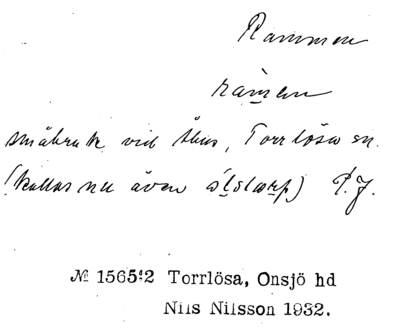 Rammen
ràmen
småbruk vid Åkus, Torrlösa sn.
(kallas nu även ólstarp) P.J.
№ 1565:2 Torrlösa, Onsjö hd
Nils Nilsson 1932.